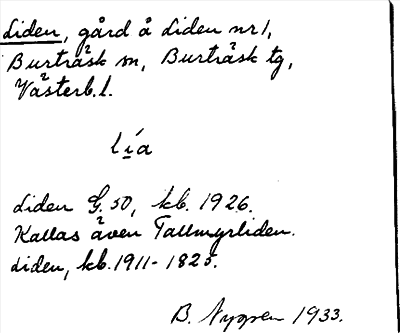 Liden, gård å Liden nr 1,
Burträsk sn, Burträsk tg,
Västerb. l.
lía
Liden G. 50, kb. 1926.
Kallas även Tallmyrliden.
Liden, kb. 1911-1825.
B. Nygren 1933.